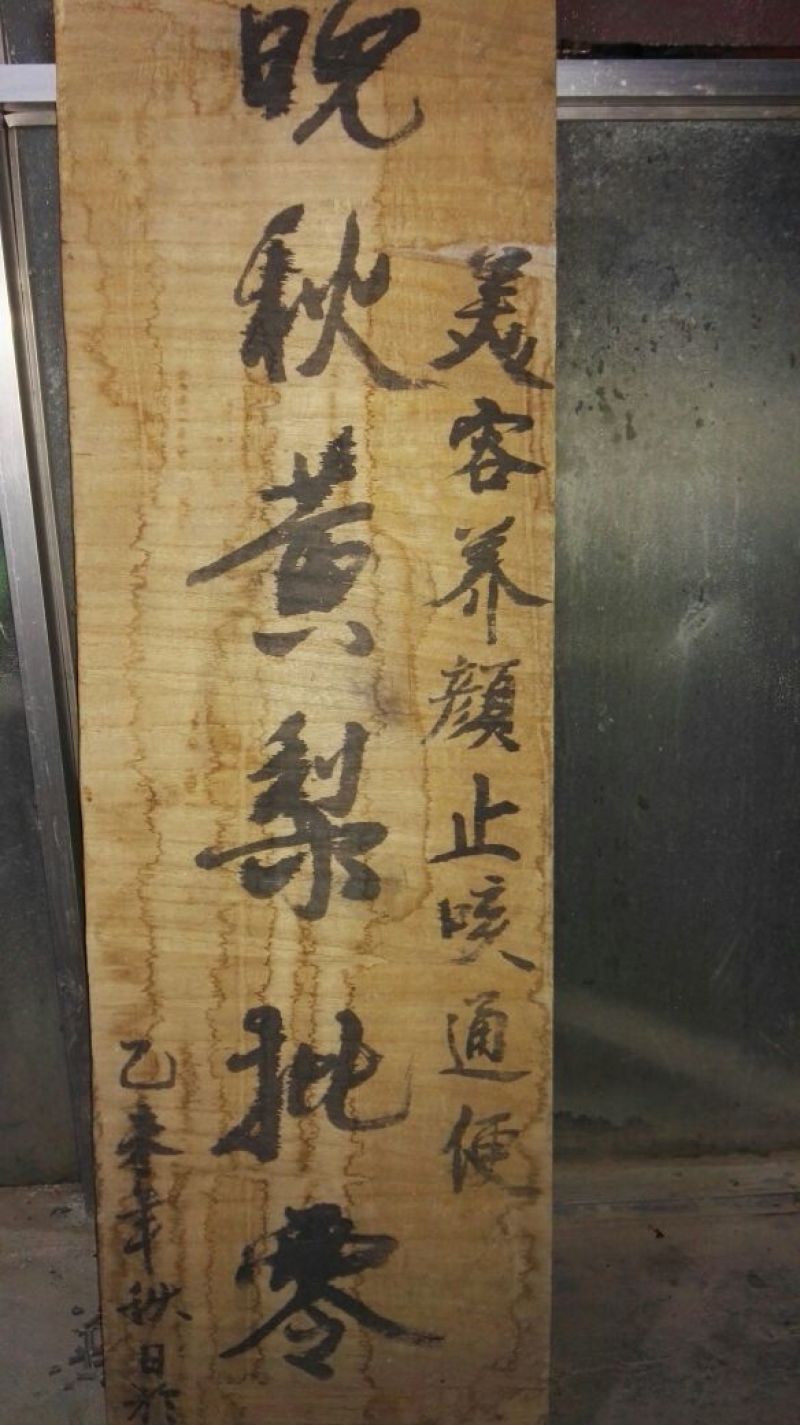 美容养顏止咳通便
晚秋黄梨批零
乙未年秋日於